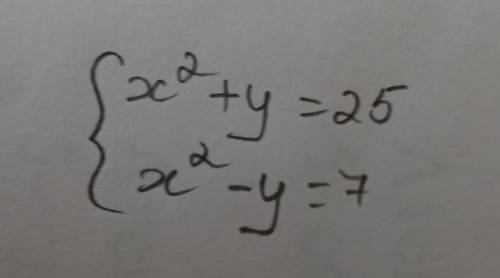 x² + y = 25
x² - y = 7